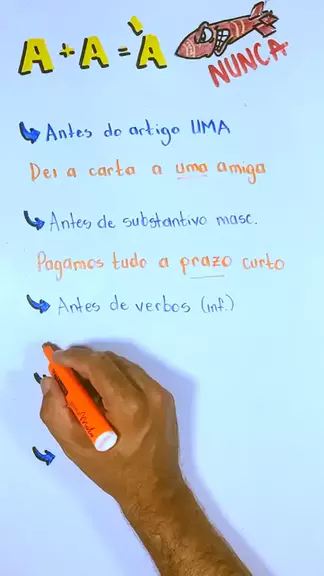 A + A = À
NUNCA
Antes do artigo UMA
Dei a carta a uma amiga
Antes de substantivo masc.
Pagamos tudo a prazo curto
Antes de verbos (inf.)